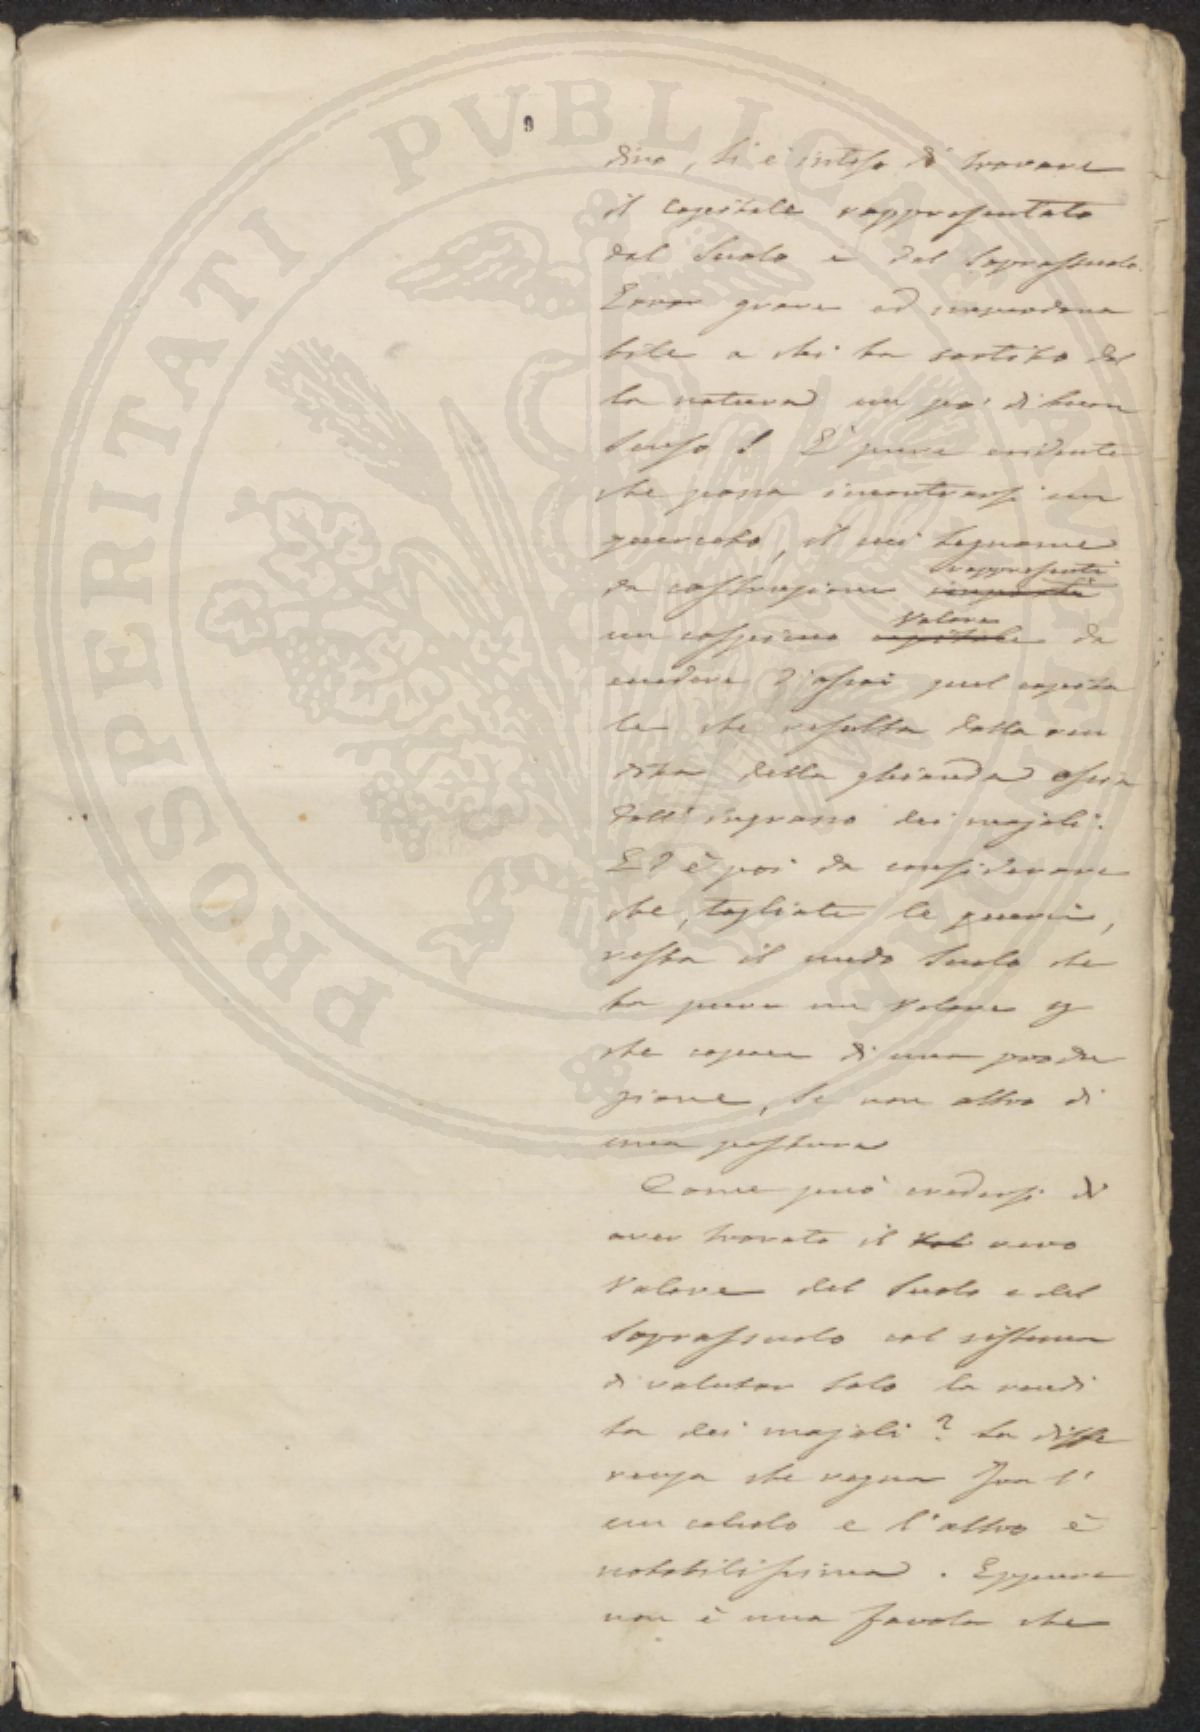 9
dino, si è inteso di trovare
il capitale rappresentato
dal suolo e dal soprassuolo.
Error grave ed imperdona
bile a chi ha sortito dal
la natura un po' di buon
senso! È pure evidente
che possa incontrarsi un
querceto, il cui legname
da costruzione importi rappresenti
un cospicuo capitale valore da
eccedere d'assai quel capita
le che risulta dalla ren
dita della ghianda ossia
dall'ingrasso dei majali.
Ed è poi da considerare
che, tagliate le querci,
resta il nudo suolo che
ha pure un valore
che capace di una produ
zione, se non altro di
una pastura
Come può credersi di
aver trovato il val vero
valore del suolo e del
soprassuolo col sistema
di valutar solo la rendi
ta dei majali? La diffe
renza che regna fra l'
un calcolo e l'altro è
notabilissima. Eppure
non è una favola che
PROSPERITATI PUBLICAE